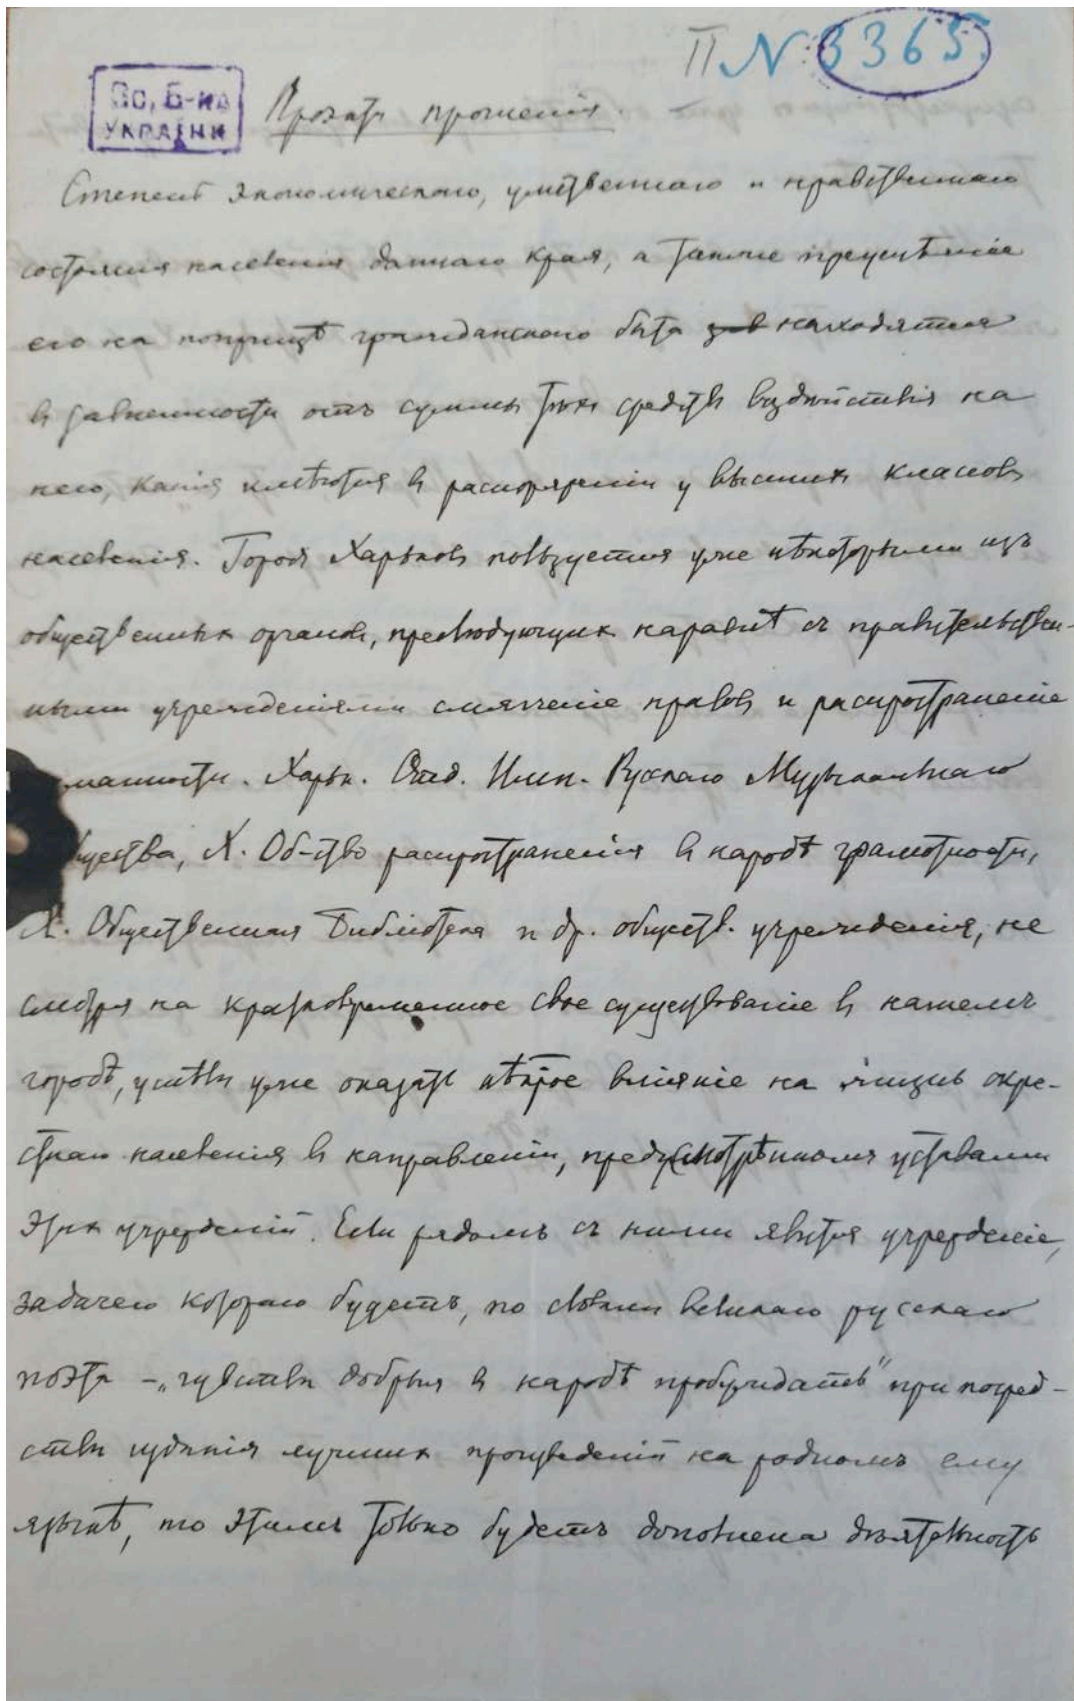 II N 3365.
Вс. Б-ка
УКРАЇНИ
Проэктъ прошенія.
Степень экономическаго, умственнаго и нравственнаго
состоянія населенія даннаго края, а также преуспѣяніе
его на поприщѣ гражданскаго быта находятся
въ зависимости отъ суммы тѣхъ средствъ воздѣйствія на
него, какія имѣются въ распоряженіи у высшихъ классовъ
населенія. Городъ Харьковъ пользуется уже нѣкоторыми изъ
общественныхъ органовъ, преслѣдующихъ наравнѣ съ правительствен-
ными учрежденіями смягченіе нравовъ и распространеніе
манности. Харьк. Отд. Имп. Русскаго Музыкальнаго
щества, Х. Об-ство распространенія въ народѣ грамотности,
Х. Общественная Библіотека и др. обществ. учрежденія, не
смотря на кратковременное свое существованіе въ нашемъ
городѣ, успѣли уже оказать нѣкрое вліяніе на жизнь окре-
стнаго населенія въ направленіи, предусмотрѣнномъ уставами
этихъ учрежденій. Если рядомъ съ ними явится учрежденіе,
задачею котораго будетъ, по словамъ великаго русскаго
поэта – „чувства добрыя въ народѣ пробуждать" при посред-
ствѣ изданія лучшихъ произведеній на родномъ ему
языкѣ, то этимъ только будетъ дополнена дѣятельность